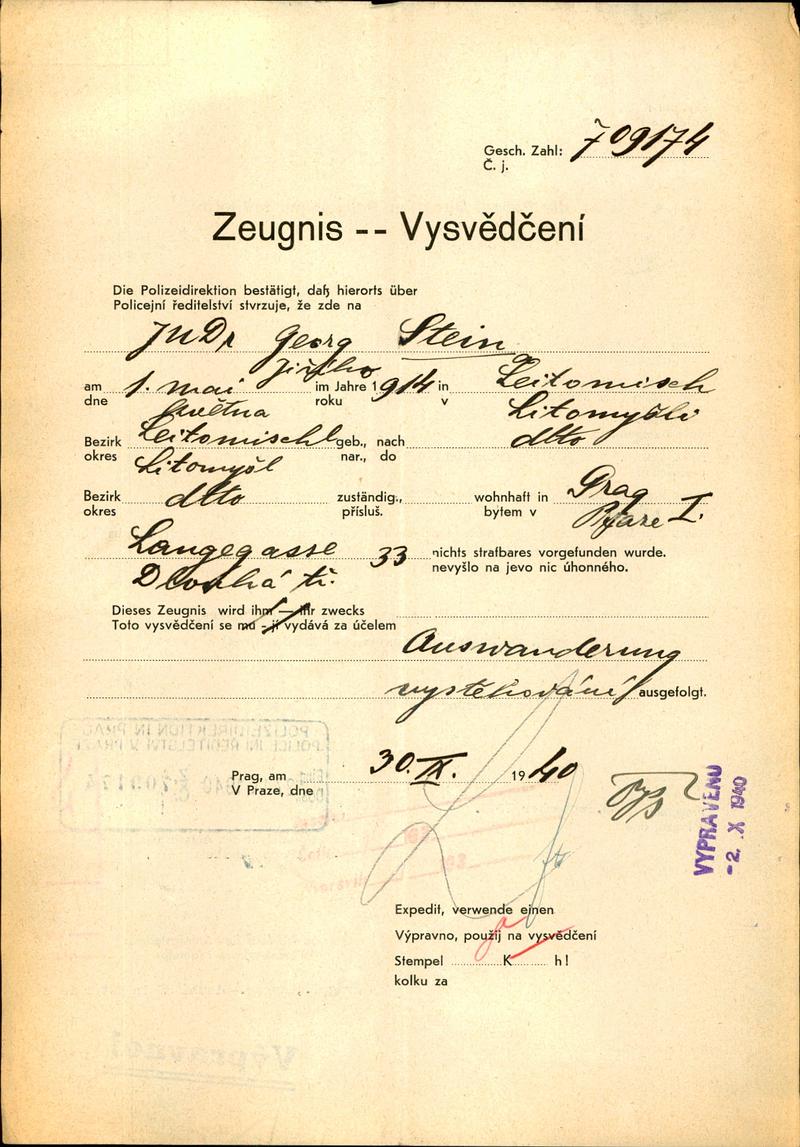 Gesch. Zahl: 709174
Č. j.
Zeugnis -- Vysvědčení
Die Polizeidirektion bestätigt, daß hierorts über
Policejní ředitelství stvrzuje, že zde na
JUDr Georg Stein
Jiřího
am 1. mai im Jahre 1914 in Leitomisch
dne května roku v Litomyšli
Bezirk Leitomischl geb., nach dtto
okres Litomyšl nar., do
Bezirk dtto zuständig., wohnhaft in Prag
okres přísluš. bytem v Praze I.
Langegasse 33 nichts strafbares vorgefunden wurde.
Dlouhá tř. nevyšlo na jevo nic úhonného.
Dieses Zeugnis wird ihm — ihr zwecks
Toto vysvědčení se mu - jí vydává za účelem
Auswanderung
vystěhování ausgefolgt.
Prag, am 30. IX. 1940
V Praze, dne
VYPRAVENO
-2. X 1940
Expedit, verwende einen
Výpravno, použij na vysvědčení
Stempel K h!
kolku za